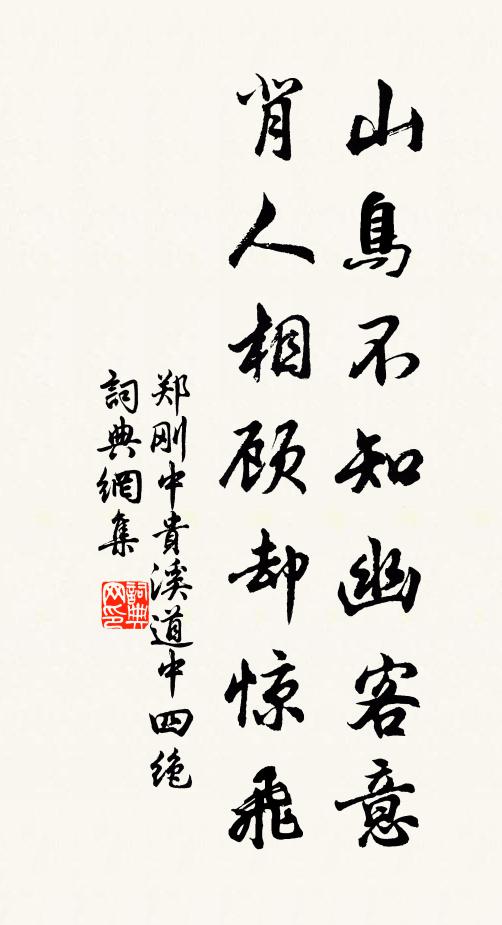 山鳥不知幽客意
背人相顾却惊飛
郑刚中貴溪道中四绝
詞典網集
詞典网印